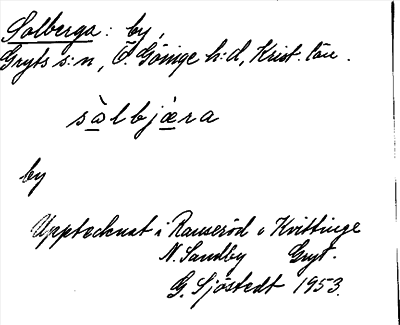 Solberga: by,
Gryts s:n, Ö. Göinge h:d, Krist. län.
sòlbjæra
by
Upptecknat i Ranseröd o Kvittinge
N. Sandby Gryt.
G. Sjöstedt 1953.